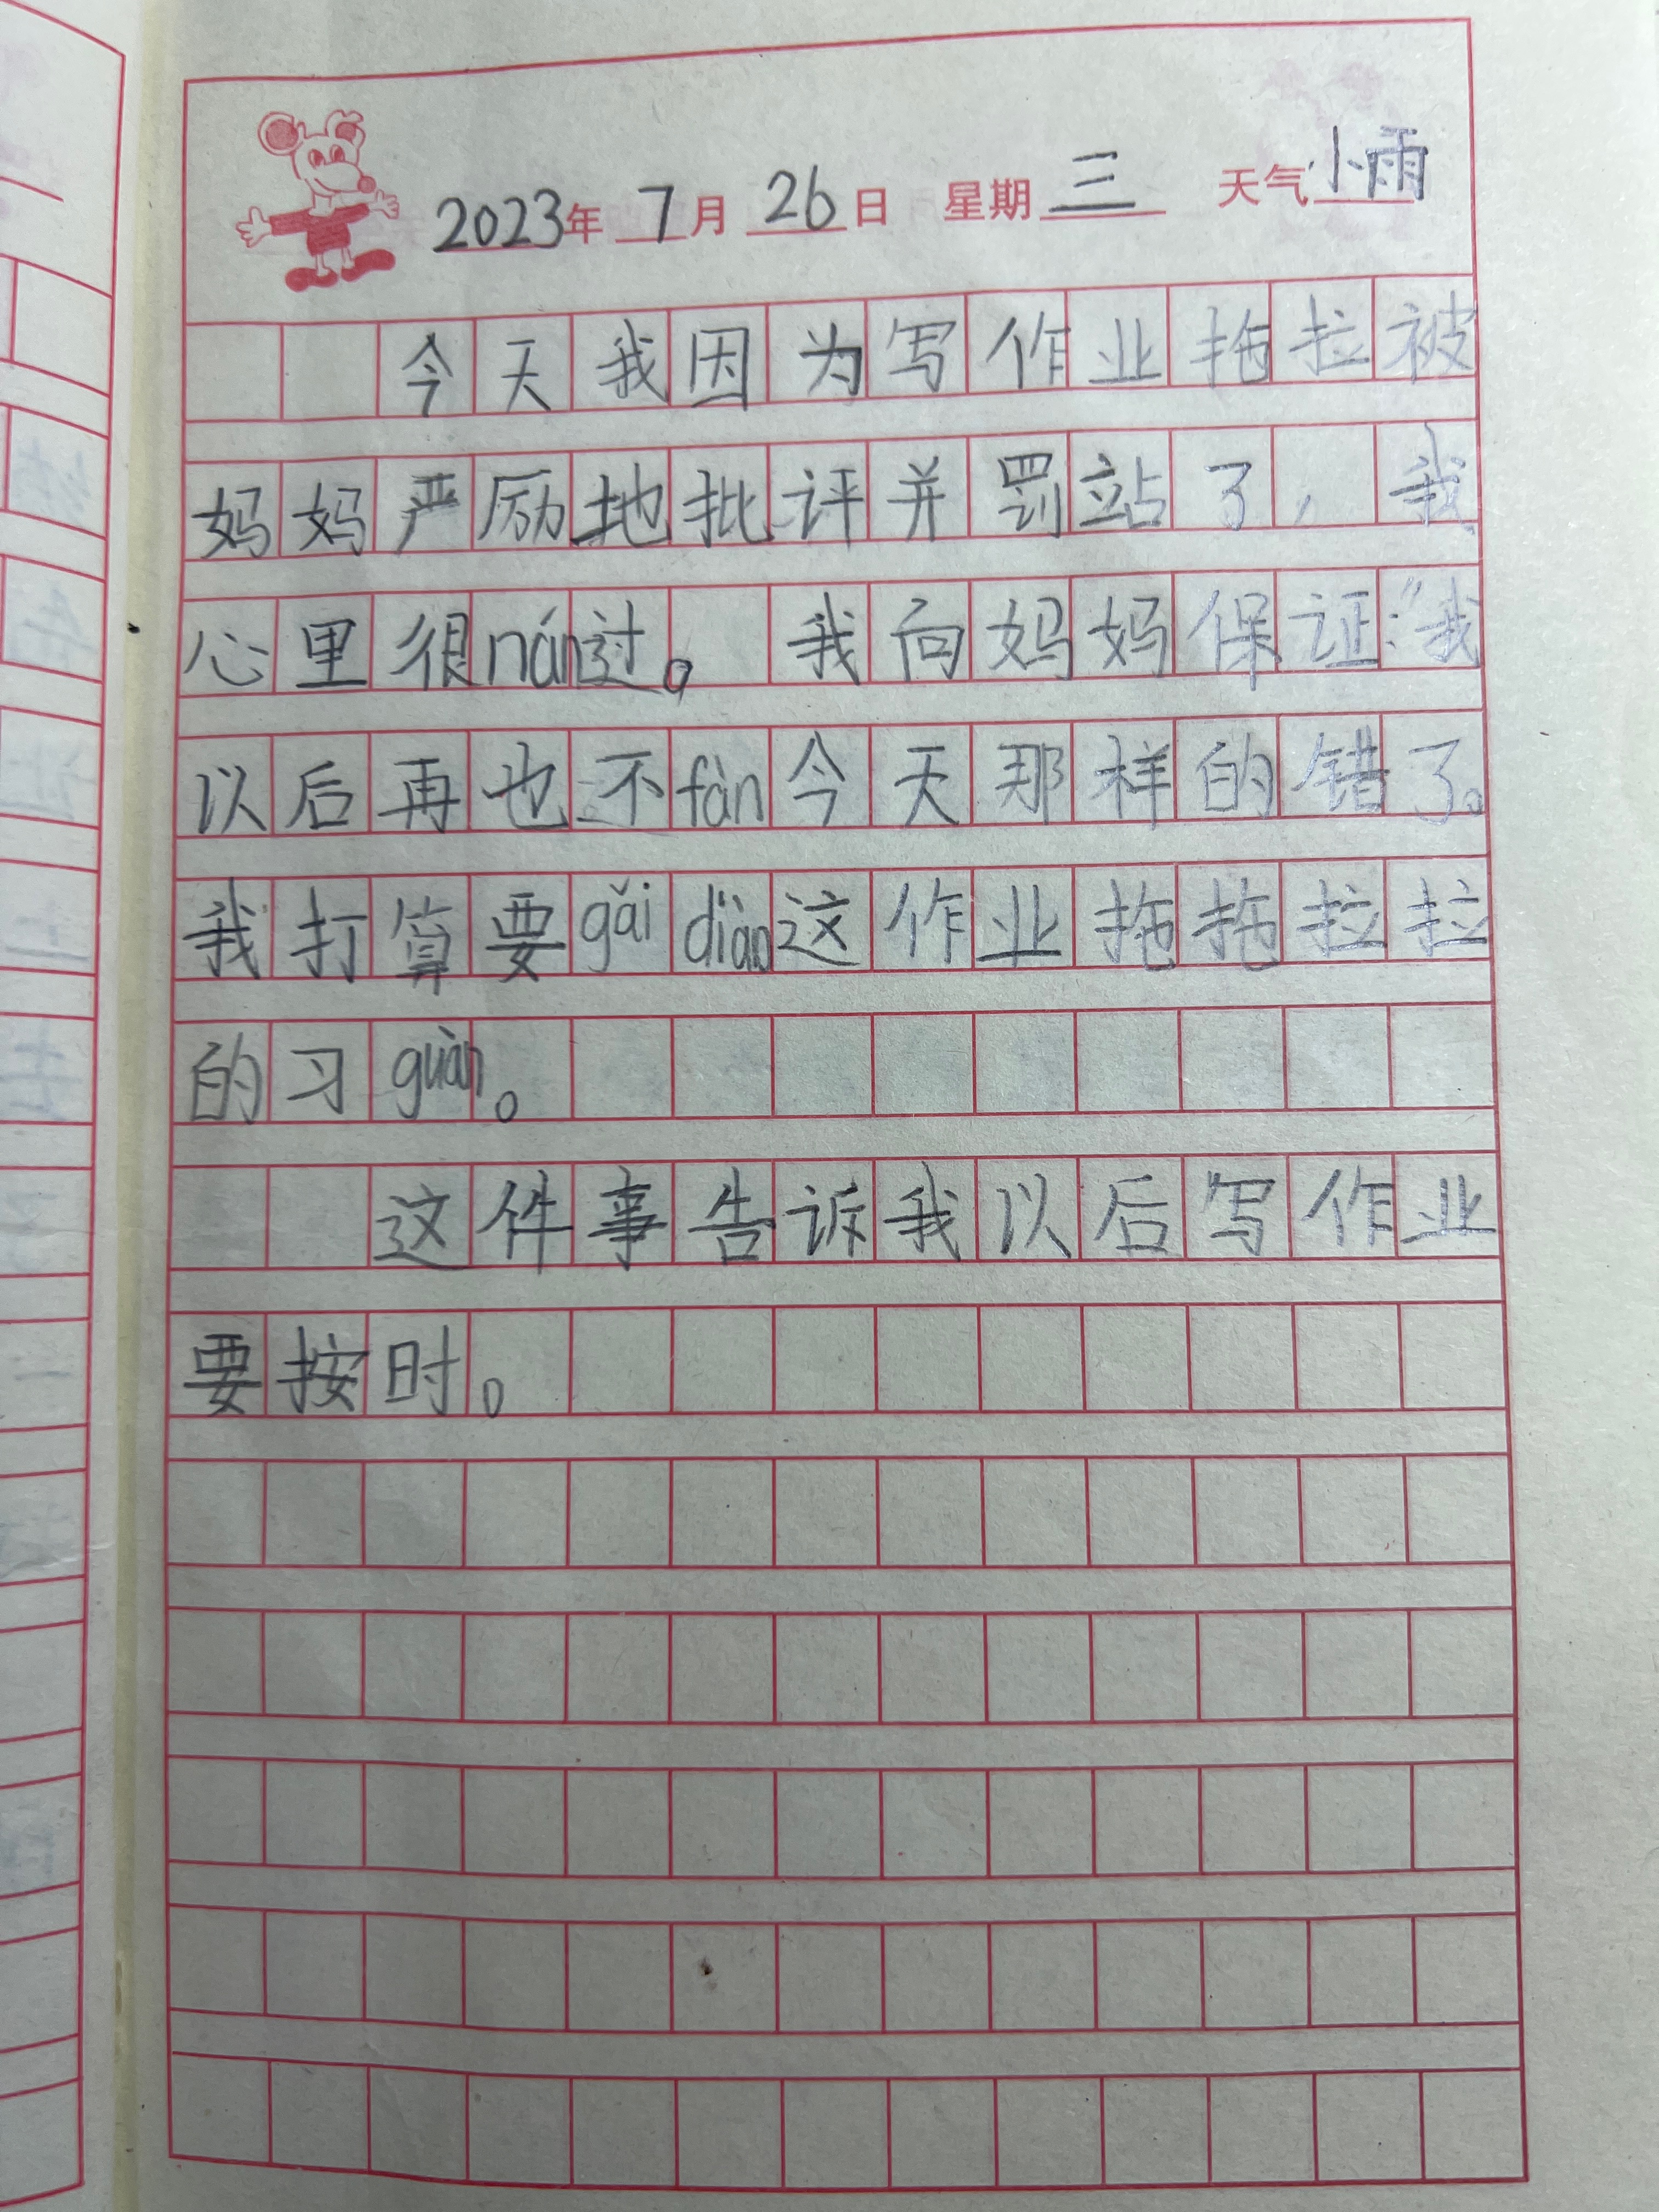 2023年 7月 26日 星期三 天气小雨
今天我因为写作业拖拉被
妈妈严厉地批评并罚站了，我
心里很nán过。我向妈妈保证：“我
以后再也不fàn今天那样的错了。
我打算要gǎi diào这作业拖拖拉拉
的习guàn。
这件事告诉我以后写作业
要按时。